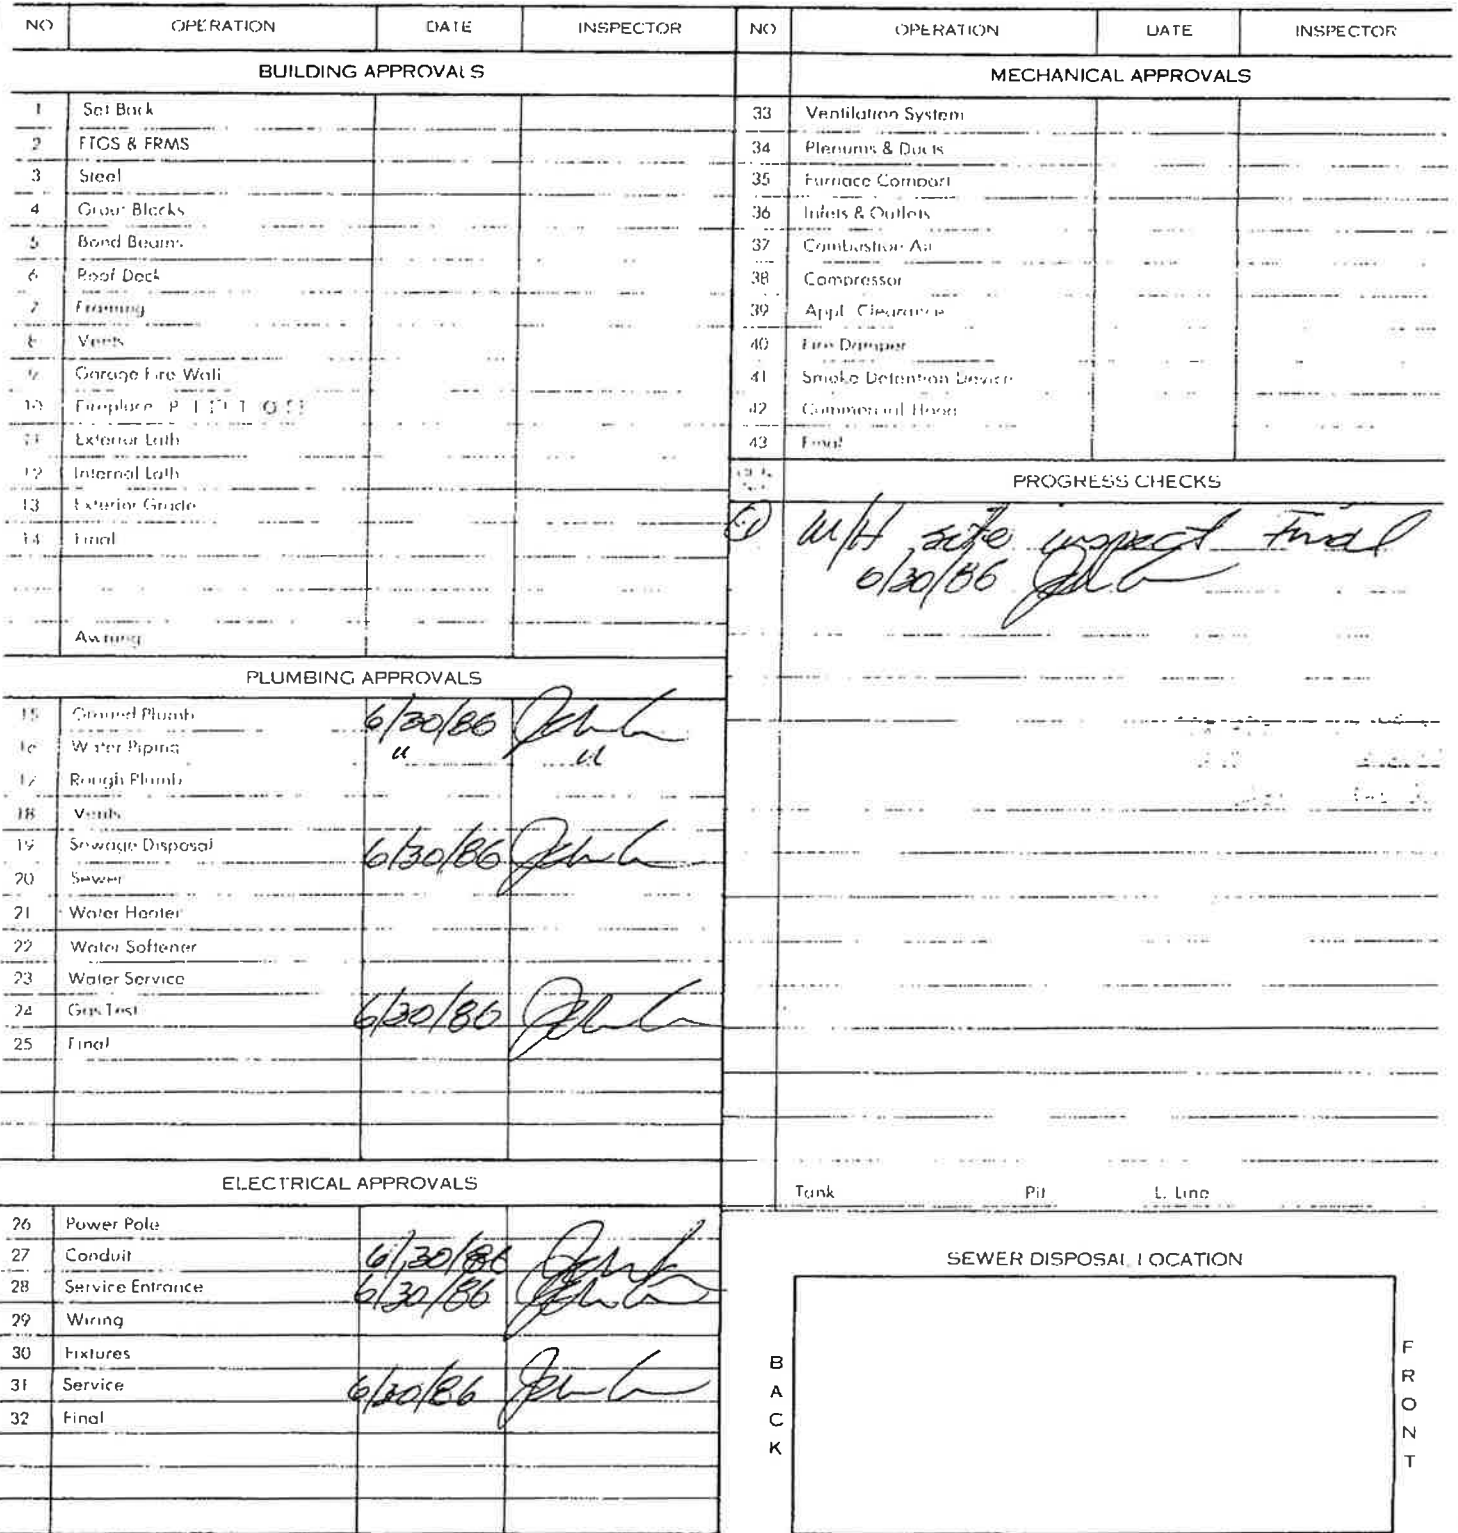 NO OPERATION DATE INSPECTOR
BUILDING APPROVALS
1 Set Back
2 FTGS & FRMS
3 Steel
4 Grout Blocks
5 Bond Beams
6 Roof Deck
7 Framing
8 Vents
9 Garage Fire Wall
10 Fireplace
11 Exterior Lath
12 Internal Lath
13 Exterior Grade
14 Final
Awning
PLUMBING APPROVALS
15 Ground Plumb 6/30/86
16 Water Piping " "
17 Rough Plumb
18 Vents
19 Sewage Disposal 6/30/86
20 Sewer
21 Water Heater
22 Water Softener
23 Water Service
24 Gas Test 6/30/86
25 Final
ELECTRICAL APPROVALS
26 Power Pole
27 Conduit 6/30/86
28 Service Entrance 6/30/86
29 Wiring
30 Fixtures
31 Service 6/30/86
32 Final
NO OPERATION DATE INSPECTOR
MECHANICAL APPROVALS
33 Ventilation System
34 Plenums & Ducts
35 Furnace Compart
36 Inlets & Outlets
37 Combustion Air
38 Compressor
39 Appl. Clearance
40 Fire Damper
41 Smoke Detention Device
42 Commercial Hood
43 Final
PROGRESS CHECKS
M/H site inspect Final
6/30/86
Tank Pit L. Line
SEWER DISPOSAL LOCATION
BACK
FRONT